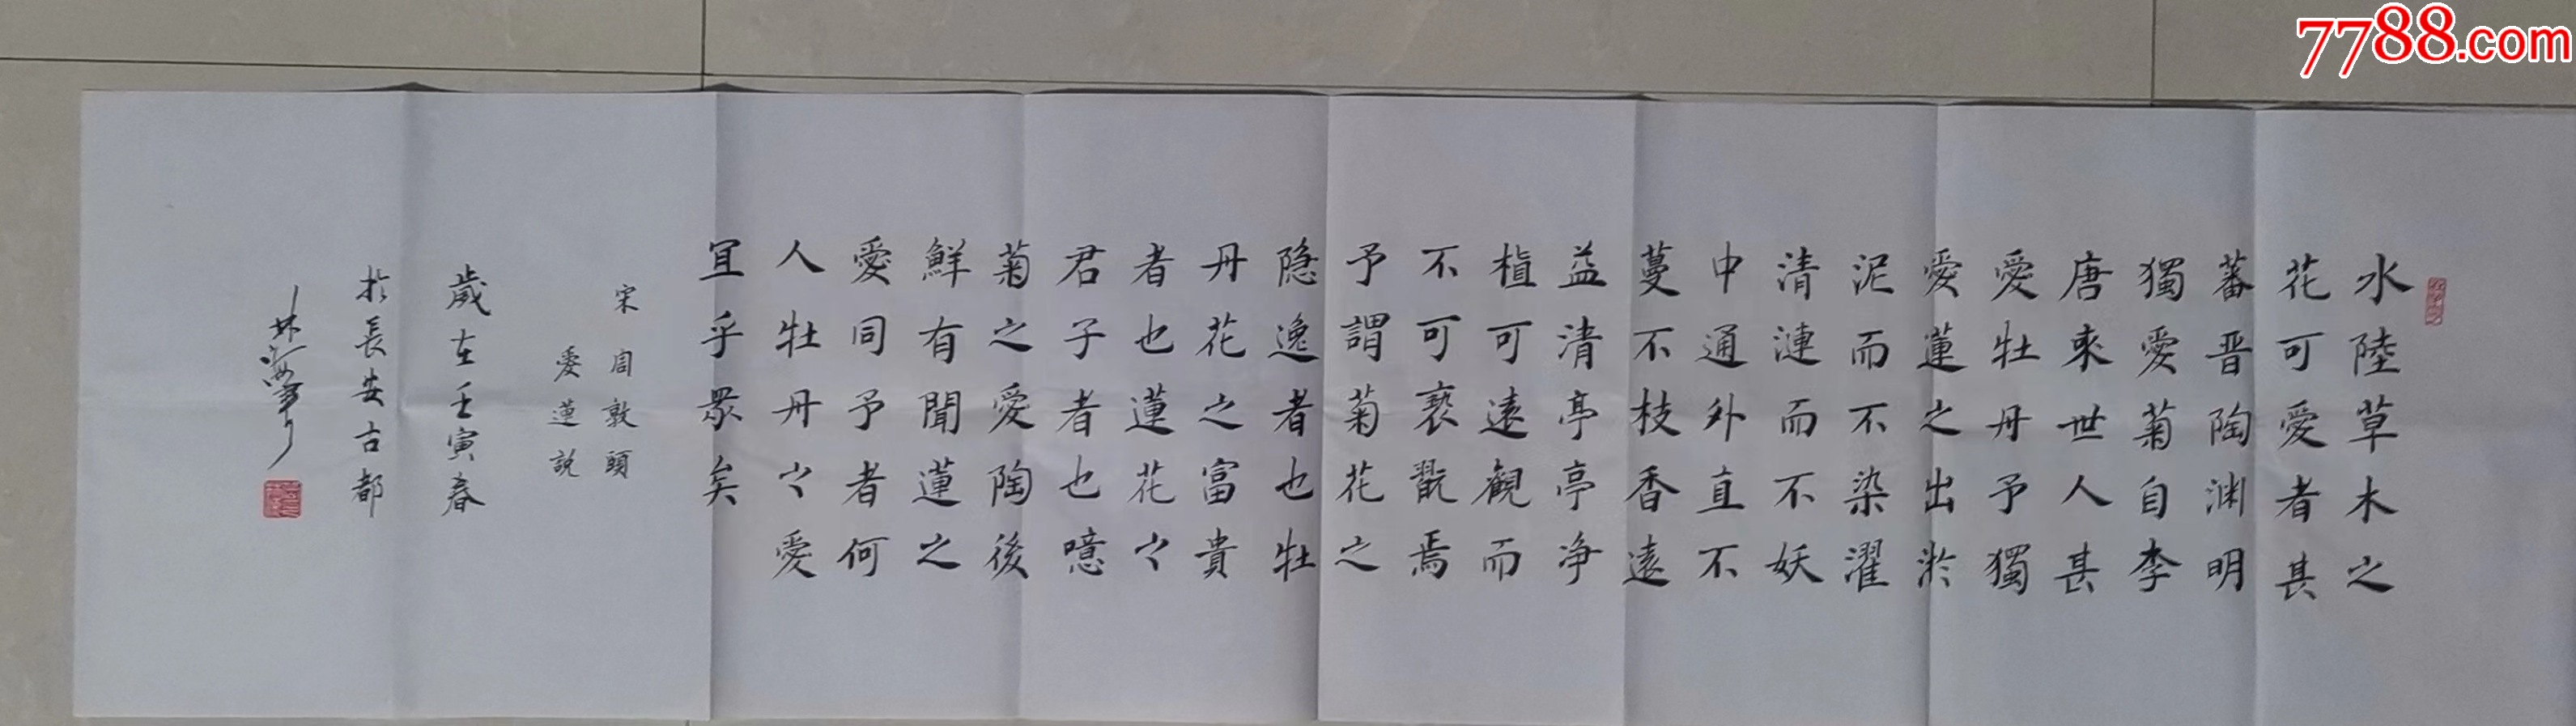 水陸草木之
花可愛者甚
蕃晋陶渊明
獨愛菊自李
唐来世人甚
愛牡丹予獨
愛蓮之出淤
泥而不染濯
清漣而不妖
中通外直不
蔓不枝香遠
益清亭亭净
植可遠觀而
不可褻翫焉
予謂菊花之
隐逸者也牡
丹花之富貴
者也蓮花之
君子者也噫
菊之愛陶後
鮮有聞蓮之
愛同予者何
人牡丹之愛
宜乎眾矣
宋周敦頤
愛蓮說
歲在壬寅春
於長安古都
7788.com